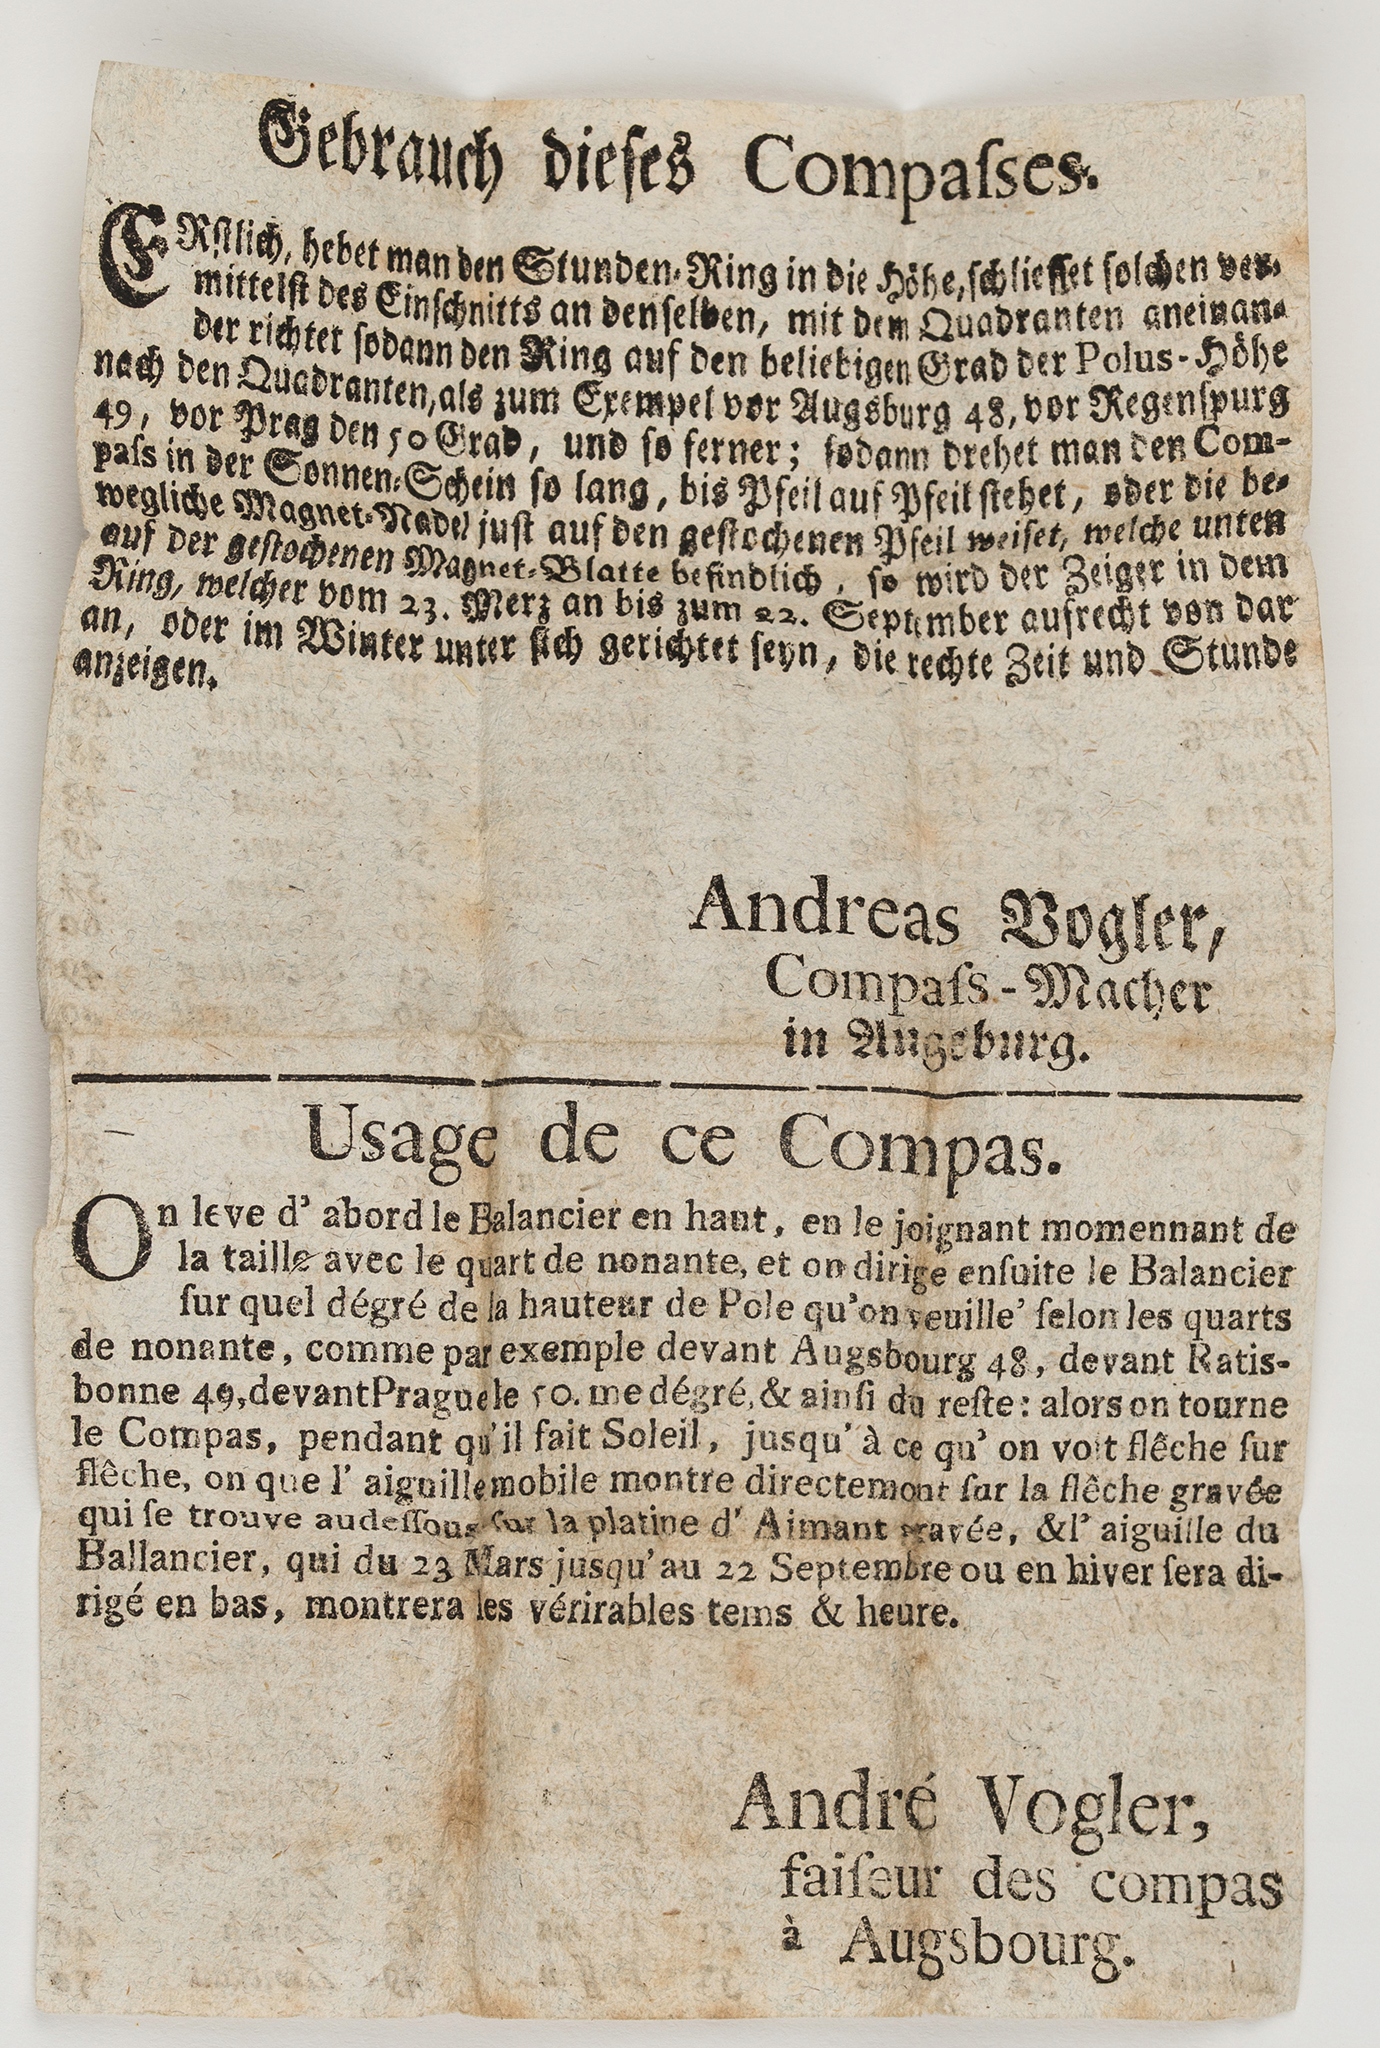 Gebrauch dieſes Compaſses.
ERſtlich, hebet man den Stunden-Ring in die Höhe, ſchlieſſet ſolchen ver-
mittelſt des Einſchnitts an denſelben, mit dem Quadranten aneinan-
der richtet ſodann den Ring auf den beliebigen Grad der Polus-Höhe
nach den Quadranten, als zum Exempel vor Augsburg 48, vor Regenſpurg
49, vor Prag den 50 Grad, und ſo ferner; ſodann drehet man den Com-
paſs in der Sonnen-Schein ſo lang, bis Pfeil auf Pfeil ſtehet, oder die be-
wegliche Magnet-Nadel juſt auf den geſtochenen Pfeil weiſet, welche unten
auf der geſtochenen Magnet-Blatte befindlich, ſo wird der Zeiger in dem
Ring, welcher vom 23. Merz an bis zum 22. September aufrecht von dar
an, oder im Winter unter ſich gerichtet ſeyn, die rechte Zeit und Stunde
anzeigen.
Andreas Vogler,
Compaſs-Macher
in Augsburg.
Usage de ce Compas.
On leve d' abord le Balancier en haut, en le joignant momennant de
la taille avec le quart de nonante, et on dirige enſuite le Balancier
ſur quel dégré de la hauteur de Pole qu'on veuille' ſelon les quarts
de nonante, comme par exemple devant Augsbourg 48, devant Ratis-
bonne 49, devant Prague le 50. me dégré, & ainſi du reſte: alors on tourne
le Compas, pendant qu'il fait Soleil, jusqu' à ce qu' on voit flêche ſur
flêche, on que l' aiguille mobile montre directemont ſur la flêche gravée
qui ſe trouve audeſſous ſur la platine d' Aimant gravée, & l' aiguille du
Ballancier, qui du 23 Mars jusqu' au 22 Septembre ou en hiver ſera di-
rigé en bas, montrera les vérirables tems & heure.
André Vogler,
faiſeur des compas
à Augsbourg.